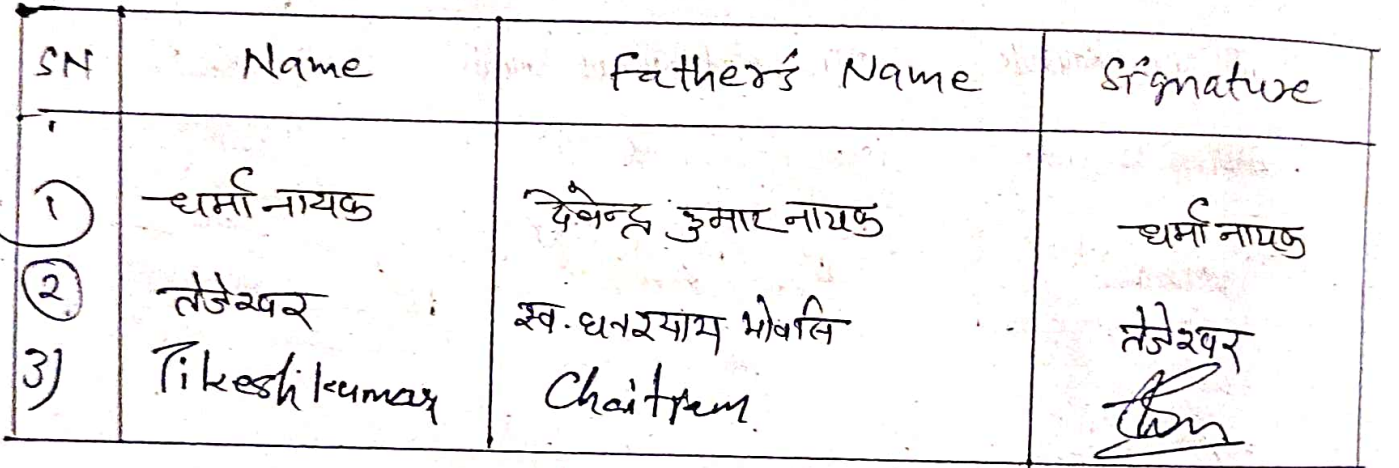 SN Name Father's Name Signature
1 धर्मा नायक देवेन्द्र कुमार नायक धर्मा नायक
2 तेजेश्वर स्व. घनश्याम तेजेश्वर
3) Tikesh kumar Chaitram